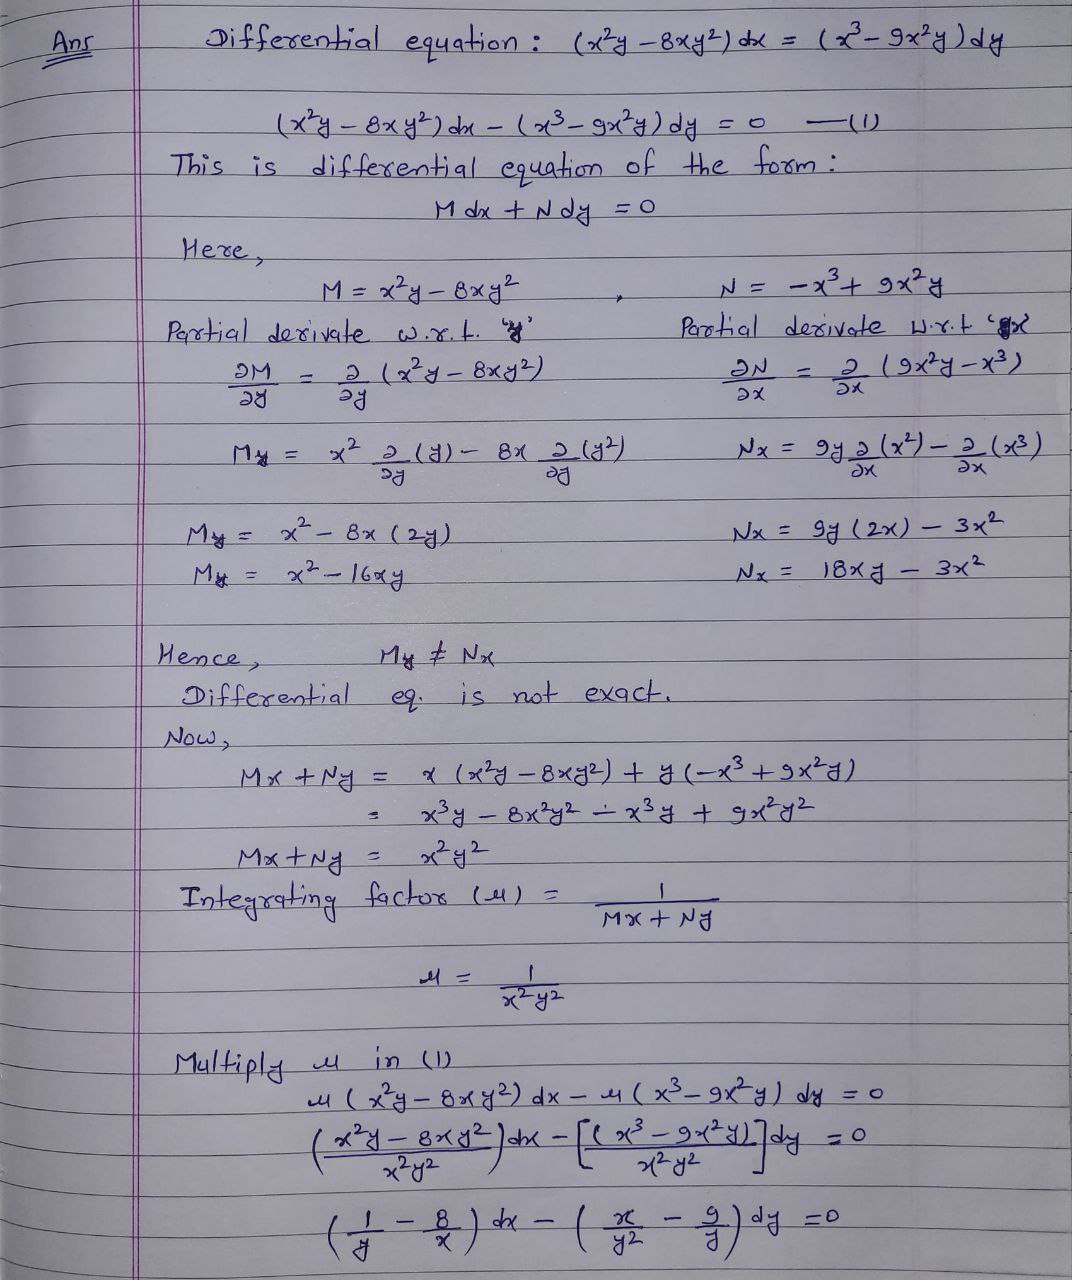 Ans Differential equation : (x²y – 8xy²) dx = (x³ – 9x²y) dy
(x²y – 8xy²) dx – (x³ – 9x²y) dy = 0 —(1)
This is differential equation of the form :
M dx + N dy = 0
Here,
M = x²y – 8xy² , N = –x³ + 9x²y
Partial derivate w.r.t. 'y' Partial derivate w.r.t 'x'
∂M/∂y = ∂/∂y (x²y – 8xy²) ∂N/∂x = ∂/∂x (9x²y – x³)
My = x² ∂/∂y (y) – 8x ∂/∂y (y²) Nx = 9y ∂/∂x (x²) – ∂/∂x (x³)
My = x² – 8x (2y) Nx = 9y (2x) – 3x²
My = x² – 16xy Nx = 18xy – 3x²
Hence, My ≠ Nx
Differential eq. is not exact.
Now,
Mx + Ny = x (x²y – 8xy²) + y (–x³ + 9x²y)
= x³y – 8x²y² – x³y + 9x²y²
Mx + Ny = x²y²
Integrating factor (μ) = 1/(Mx + Ny)
μ = 1/(x²y²)
Multiply μ in (1)
μ (x²y – 8xy²) dx – μ (x³ – 9x²y) dy = 0
((x²y – 8xy²)/(x²y²)) dx – [(x³ – 9x²y)/(x²y²)] dy = 0
(1/y – 8/x) dx – (x/y² – 9/y) dy = 0